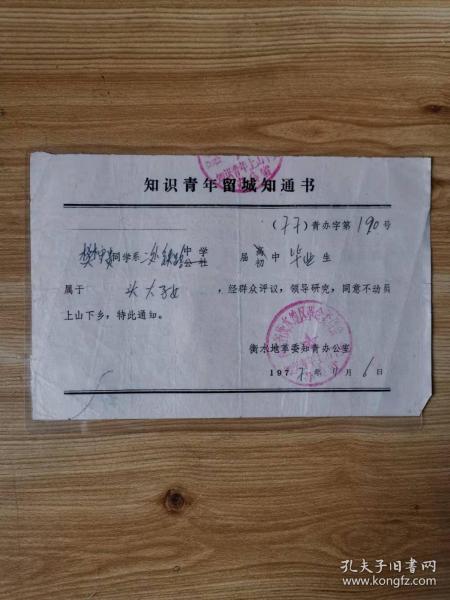 知识青年上山下
知识青年留城知通书
（77）青办字第190号
同学系二分 中学 公社 届 高 初 中毕业生
属于 头大子女 ，经群众评议，领导研究，同意不动员
上山下乡，特此通知。
衡水地革委知青办公室
1977年11月6日
孔夫子旧书网
www.kongfz.com